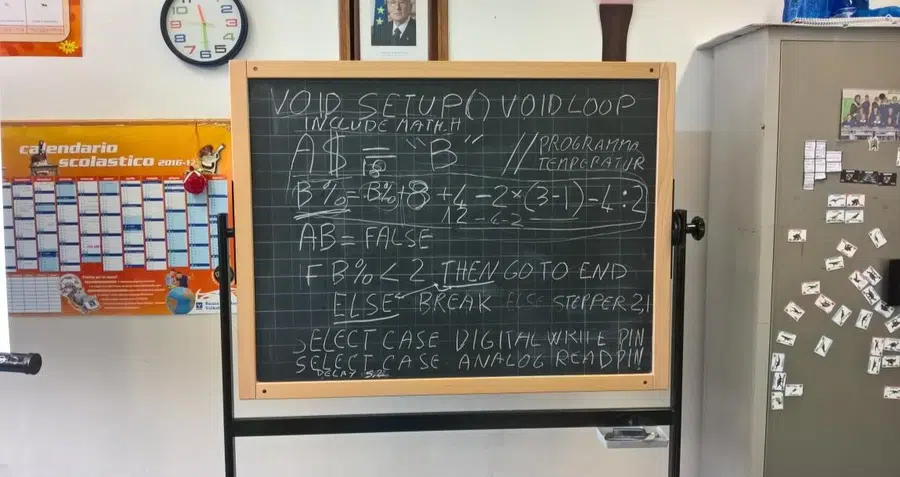 12
11
1
10
2
9
3
8
4
7
6
5
calendario
scolastico 2016-17
VOID SETUP() VOID LOOP
INCLUDE MATH.H
A$ = "B" // PROGRAMMA
TEMPERATUR
B% = B% + 8 + 4 - 2 × (3-1) - 4 : 2
12 - 4 - 2
AB = FALSE
F B% < 2 THEN GO TO END
ELSE BREAK ELSE STEPPER 2,1
ELECT CASE DIGITAL WRITE PIN
SELECT CASE ANALOG READ PIN
DELAY